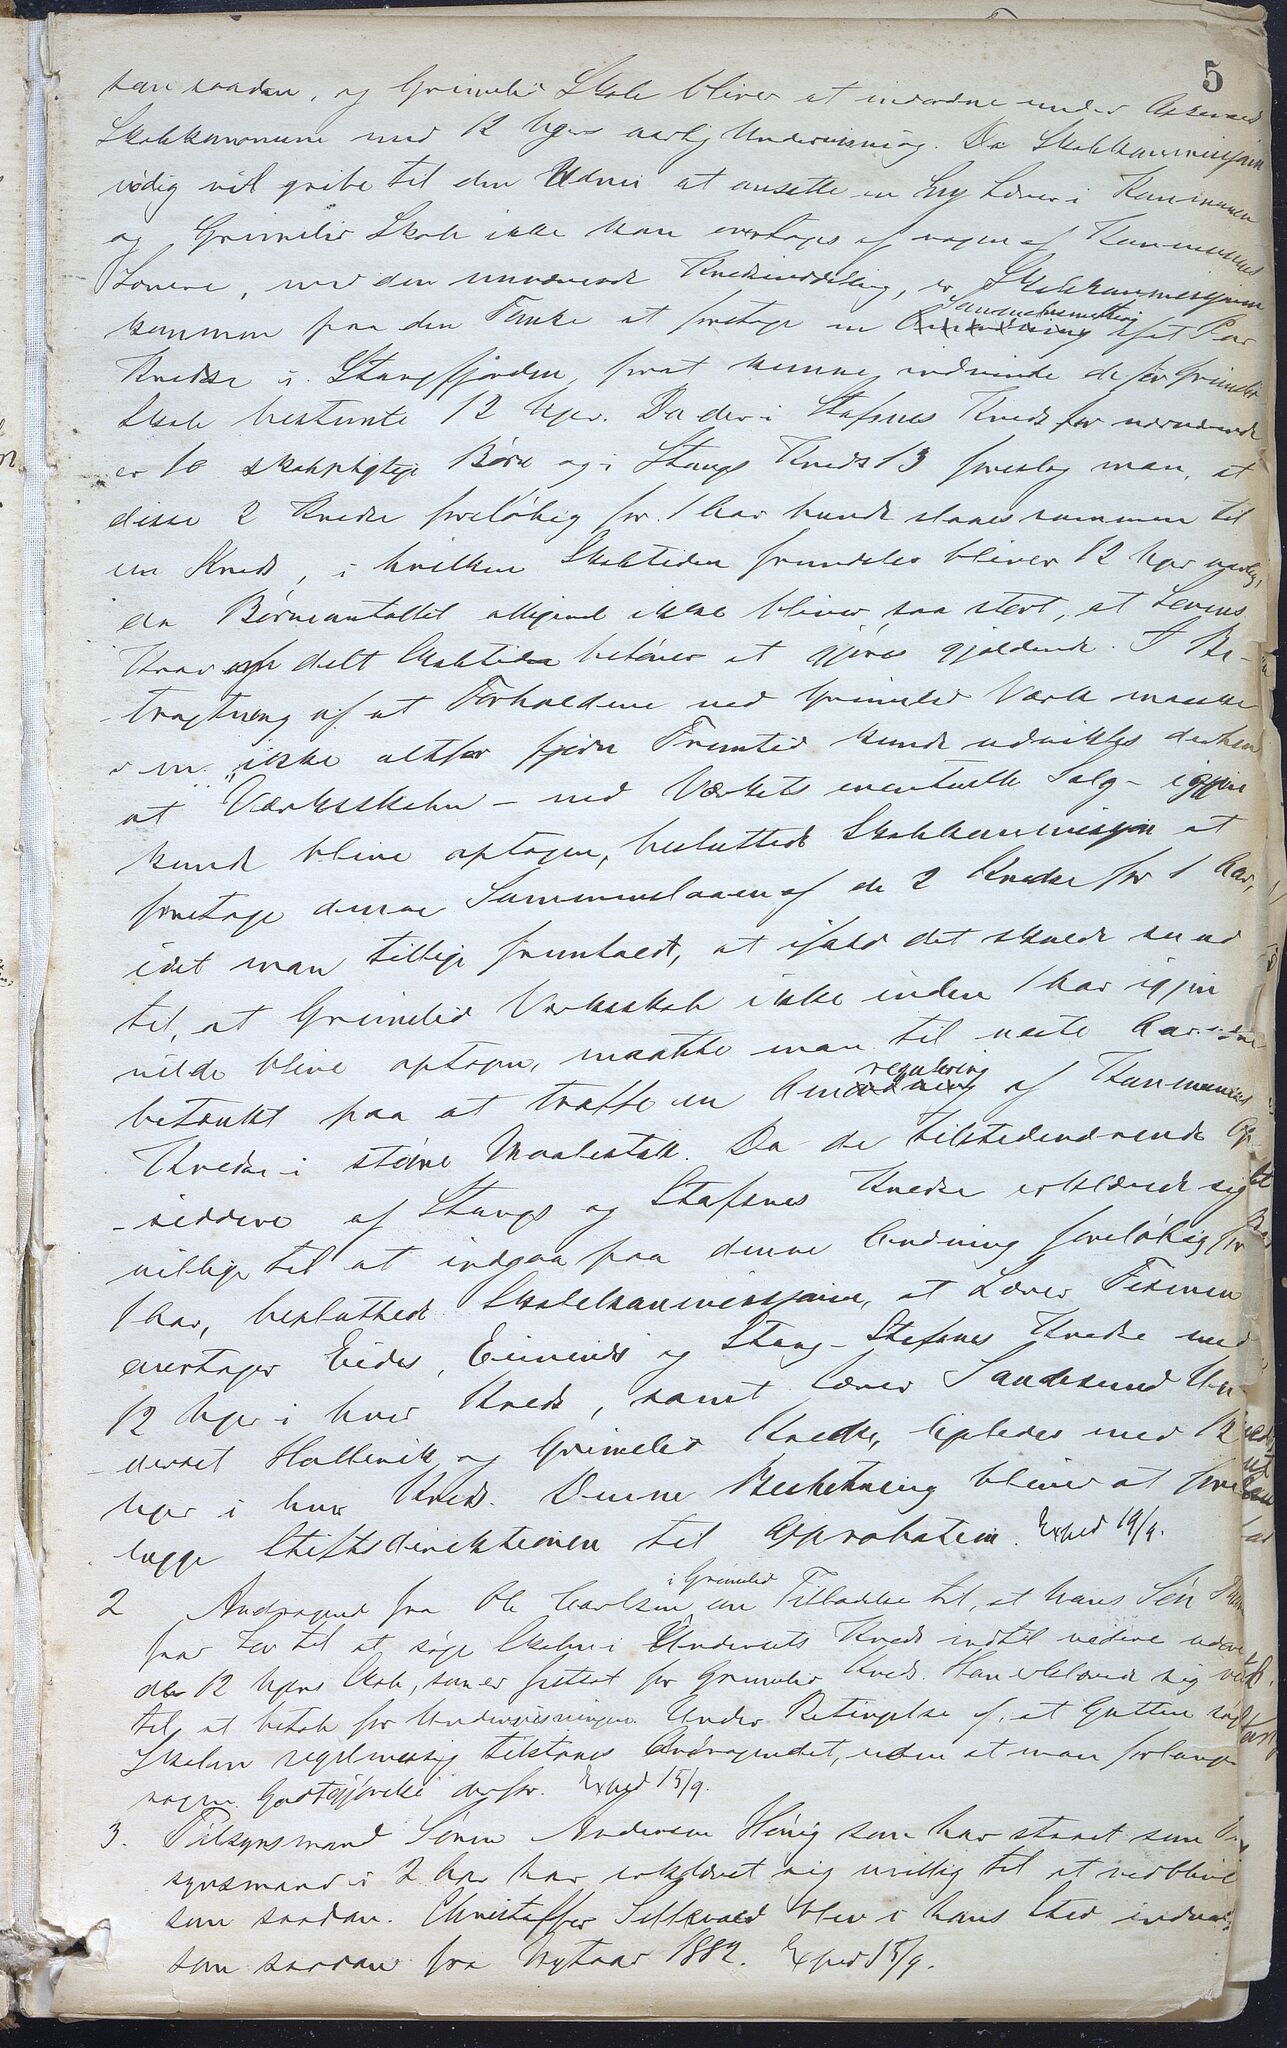 5
som saadan, og Grimelid Skole bliver at indordne under Askevold
Skolekommune med 12 Ugers aarlig Undervisning. Da Skolekommissjonen
nødig vil gribe til den Udvei at ansette en ny Lærer i Kommunen
og Grimelid Skole ikke kan overtages af nogen af Kommunens
Lærere, med den nuværende Kredsinddeling, er Skolekommissjonen
kommen paa den Tanke at foretage en Sammensmeltning af et Par
Kredse i Stangfjorden, forat kunne indvinde de for Grimelid
Skole bestemte 12 Uger. Da der i Stafsnes Kreds for nærværende
er 10 skolepligtige Børn og i Stangs Kreds 13 foreslog man, at
disse 2 Kredse foreløbig for 1 Aar kunde slaaes sammen til
en Kreds, i hvilken Skoletiden fremdeles bliver 12 Uger aarlig,
da Børneantallet alligevel ikke bliver saa stort, at Lovens
Krav om delt Skoletid behøver at gjøres gjældende. I Be-
-tragtning af at Forholdene ved Grimelid Værk maaske
i en ikke altfor fjern Fremtid kunde udvikles derhen
at Værksskolen - ved Værkets eventuelle Salg - igjen
kunde blive optagen, besluttede Skolekommissjonen at
foretage denne Sammenslaaen af de 2 Kredse for 1 Aar,
idet man tillige fremholdt, at ifald det skulde se ud
til, at Grimelid Værksskole ikke inden 1 Aar igjen
vilde blive optagen, maatte man til næste Aar være
betænkt paa at træffe en regulering af Kommunens
Kredse i større Maalestok. Da de tilstedeværende Op-
-siddere af Stangs og Stafsnes Kredse erklærede sig
villige til at indgaa paa denne Ordning foreløbig for
1 Aar, besluttede Skolekommissjonen, at Lærer
overtager Eides, og Stang-Stafsnes Kredse med
12 Uger i hver Kreds, samt Lærer Sandesund Un-
-derset Hollevik og Grimelid Kredse, ligeledes med 12
Uger i hver Kreds. Denne Beslutning bliver at fore-
lægge Stiftsdirektionen til Approbation. Exped 19/9.
2 Andragende fra Ole Carlsen i Grimelid om Tilladelse til, at hans Søn
faar Lov til at søge Skolen i Undersets Kreds indtil videre uden
de 12 Ugers Skole, som er fastsat for Grimelid Kreds. Han erklærede sig
til at betale for Undervisningen. Under Betingelse af, at Gutten søger
Skolen regelmessig tilstaaes Andragendet, uden at man forlanger
nogen Godtgjørelse derfor. Exped 15/9.
3. Tilsynsmand Søren Andersen Høiig som har staaet som
synsmand i 2 Aar har erklæret sig uvillig til at vedblive
som saadan. Christoffer Selkvold blev i hans Sted indvalgt
som saadan fra Nytaar 1882. Exped 15/9.